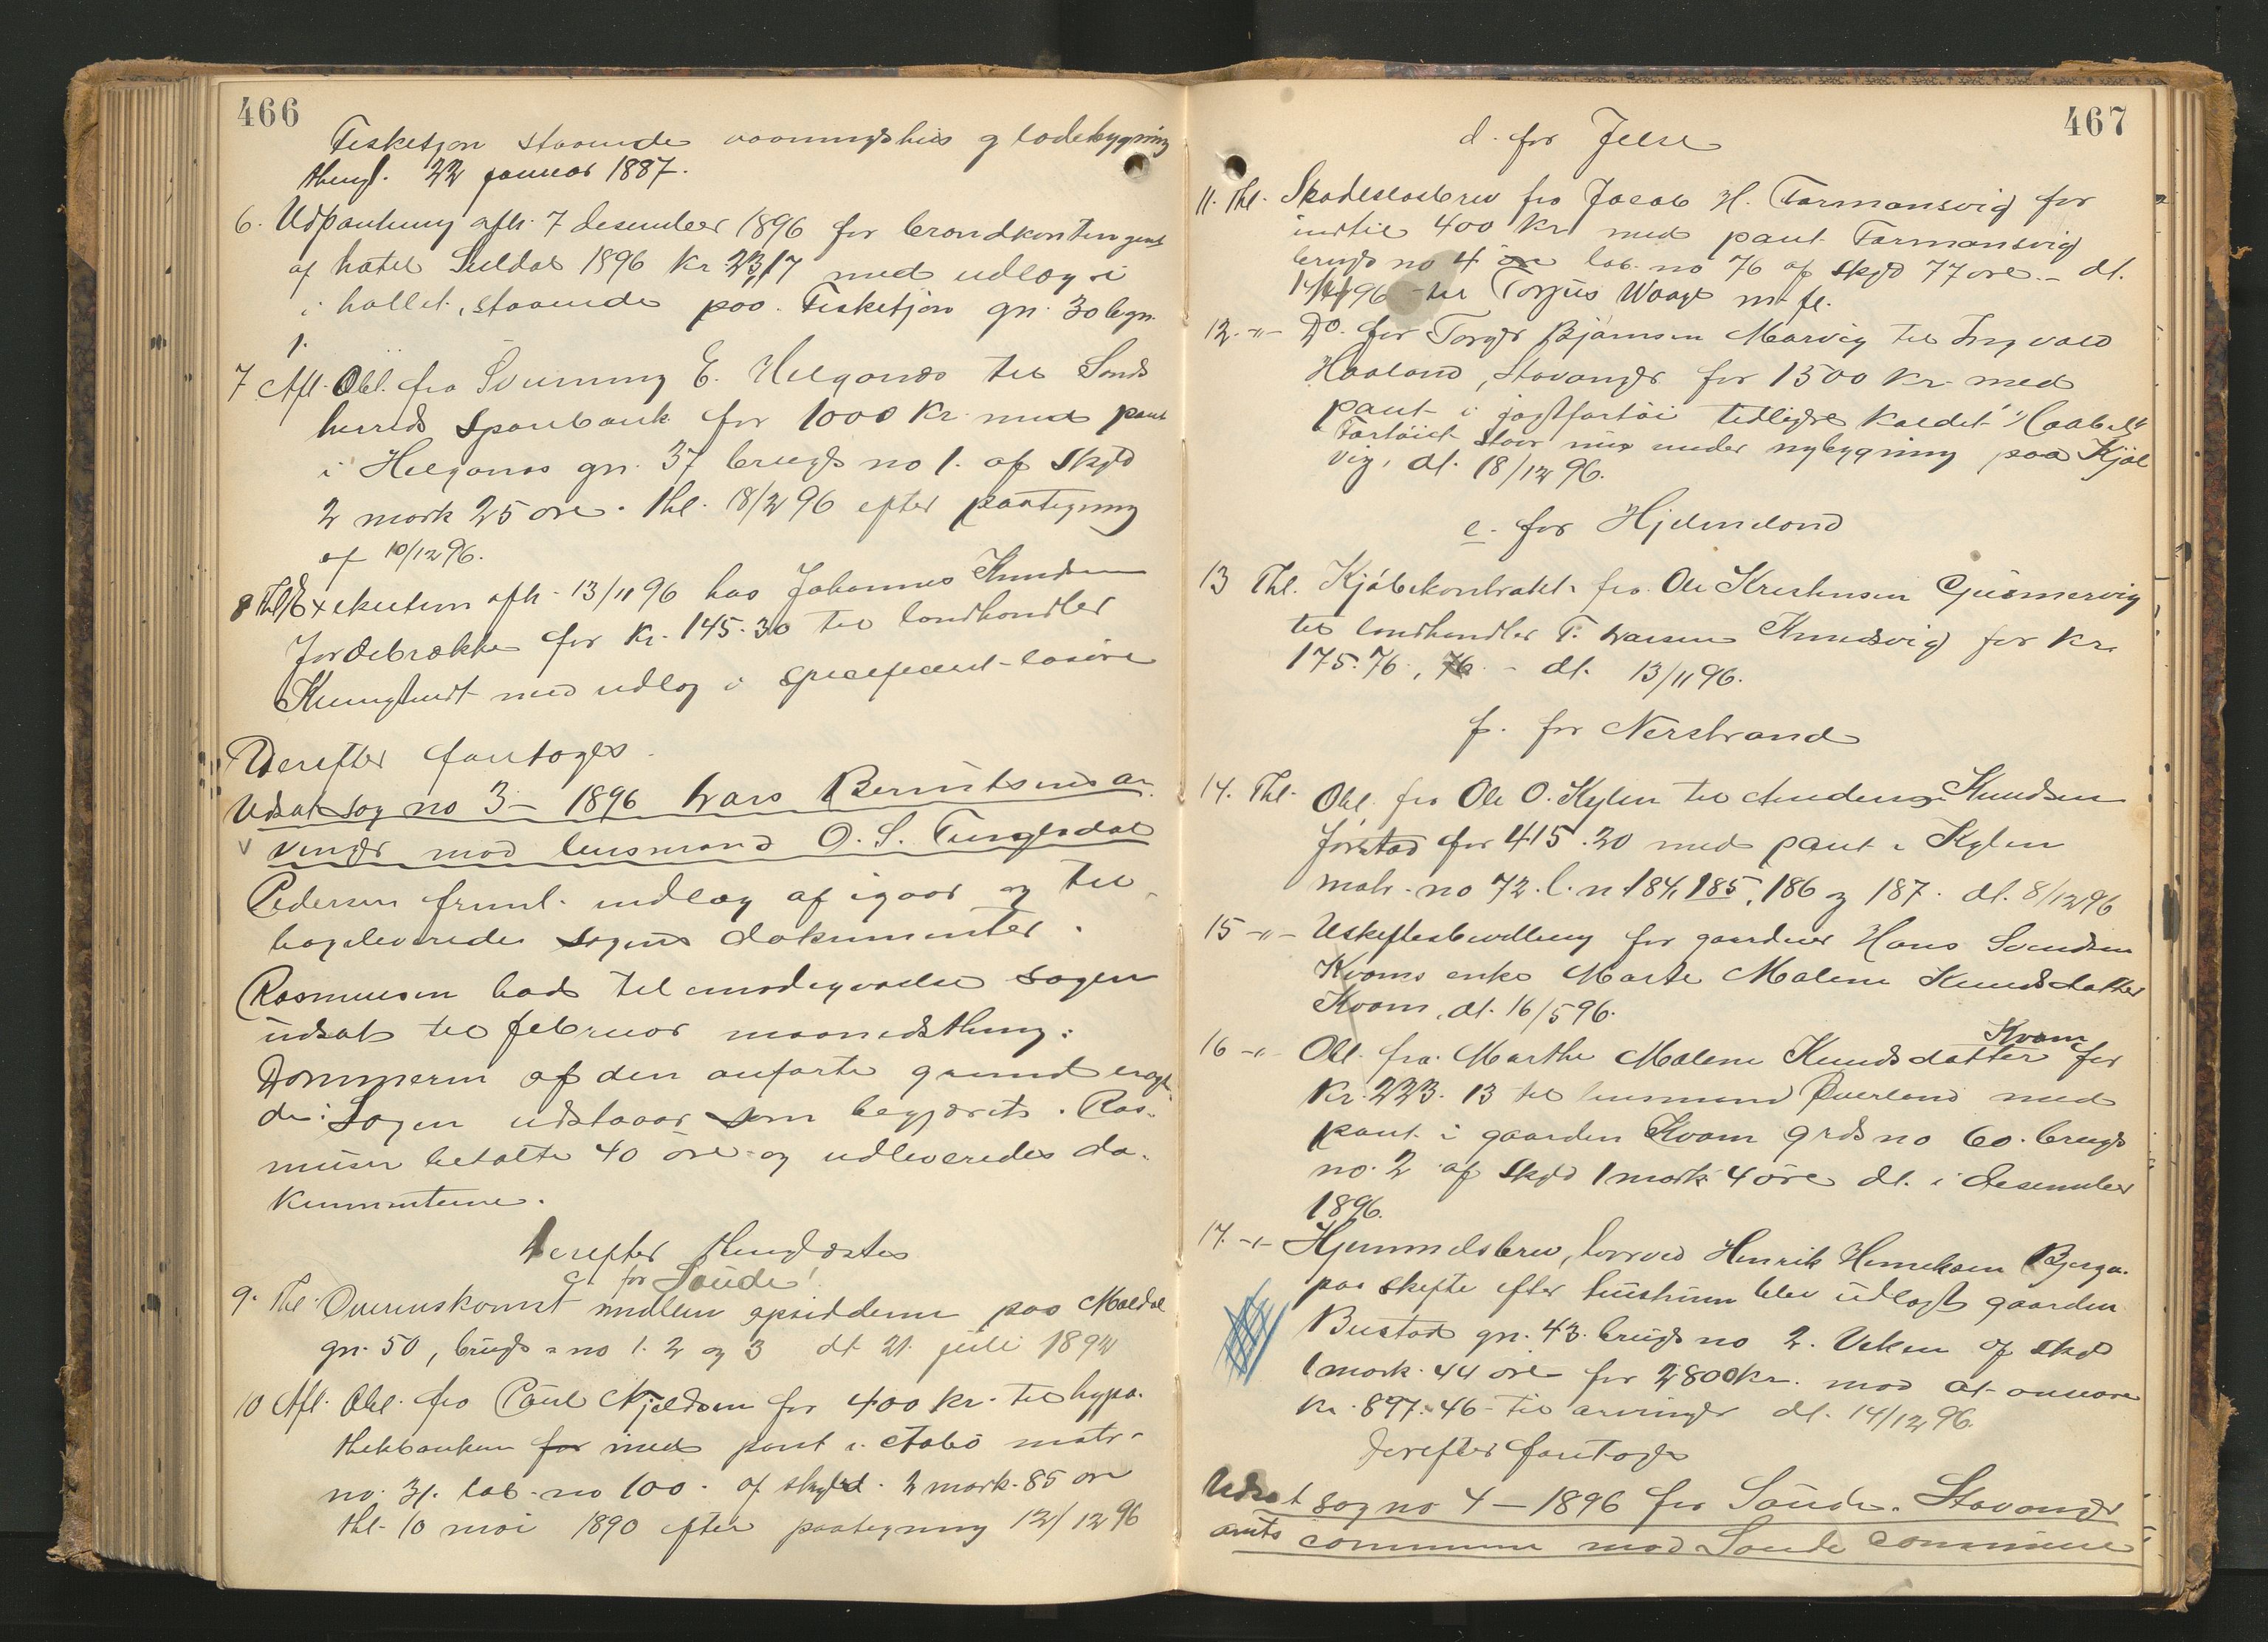 466
Fisketjøn staaende vaaningshus og ladebygning
thingl. 22 januar 1887.
6. Udpantning afh. 7 desember 1896 for brandkontingent
af hotel Suldal 1896 kr 23,17 med udlæg i
i hotlet, staaende paa Fisketjøn gn. 30 bgn.
1.
7 Afl. Obl. fra Sverning E. Helganæs til Sands
herreds Sparebank for 1000 kr. med pant
i Helganæs gn. 37 brugs no 1. af skyld
2 mark 25 øre. thl. 18/2 96 efter paategning
af 10/12 96.
8 Thl. Exekution afh. 13/11 96 hos Johannes Knudsen
Jordebrække for kr. 145.30 til landhandler
Kvinglandt med udlæg i specificeret løsøre
Derefter foretoges
Udsat sag no 3 – 1896 Lars Berentsens ar
vinger mod lensmand O. S. Tungesdal
Pedersen freml. indlæg af igaar og til-
bageleverede sagens dokumenter.
Rasmussen bad til imødegaaelse sagen
udsat til februar maanedsthing.
Dommeren af den anførte grund eragt
de: Sagen udstaaar som begjæret. Ras-
musen betalte 40 øre og udleveredes do-
kumenterne.
Derefter thinglæstes
c. for Saude!
9. Thl. Overenskomst mellem opsidderne paa Maldal
gn. 50, brugs no 1. 2 og 3 dt 21. juli 1894
10 Afl. Obl. fra Paul Kjeldsen for 400 kr. til hypo-
thekbanken for med pant i Aabø matr-
no. 31. løb. no 100. af skyld. 2 mark. 85 øre
thl. 10 mai 1890 efter paategning 12/12 96
467
d. for Jelse
11. Thl. Skadesløsbrev fra Jacob H. Tormansvig for
indtil 400 kr med pant Tormansvig
brugs no 4 løb. no 76 af skyld 77 øre – dt.
96 til Torjus Waage m. fl.
12. -"- Do. for Torger Bjørnsen Marvig til Ingvald
Haaland, Stavanger for 1500 kr. med
pant i jagtfartøi tidligere kaldet "Haabet"
Fartøiet staar nu under nybygning paa Kjøl
vig, dt. 18/12 96.
e. for Hjelmeland
13 Thl. Kjøbekontrakt fra Ole Kristensen Gusmervig
til landhandler T. Larsen Knudsvig for kr.
175.76, 76 – dt. 13/11 96.
f. for Nerstrand
14. Thl. Obl. fra Ole O. Kylen til Amdens Knudsen
Jørstad for 415.20 med pant i Kylen
matr. no 72. l. n 184, 185, 186 og 187. dt. 8/12 96
15 -"- Uskiftesbevilling for gaardmd Hans Svendsen
Kvams enke Marte Malene Knudsdatter
Kvam, dt. 16/5 96.
16 -"- Obl. fra Marthe Malene Knudsdatter Kvam for
kr. 223. 13 til lensmand Øverland med
pant i gaarden Kvam grds no 60. brugs
no. 2 af skyld 1 mark 4 øre dt. i desember
1896.
17. -"- Hjemmelsbrev, hvorved Henrik Henriksen Bjerga.
paa skifte efter hustruen blev udlagt gaarden
Bustad gn. 43. brugs no 2. Viken af skyld
1 mark. 44 øre for 2800 kr. mod at ansvare
kr. 897.46 til arvinger dt. 14/12 96.
Derefter foretoges
Udsat sag no 4 – 1896 fra Saude. Stavanger
amts commune mod Saude commune